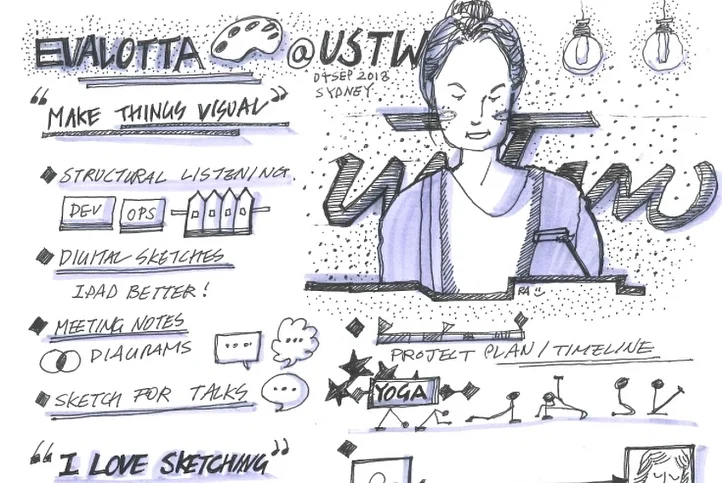 EVALOTTA @USTW
04 SEP 2018
SYDNEY
"MAKE THINGS VISUAL"
STRUCTURAL LISTENING.
DEV OPS
DIGITAL SKETCHES
IPAD BETTER!
MEETING NOTES
DIAGRAMS
SKETCH FOR TALKS
"I LOVE SKETCHING"
ustwo
RA
PROJECT PLAN/TIMELINE
YOGA